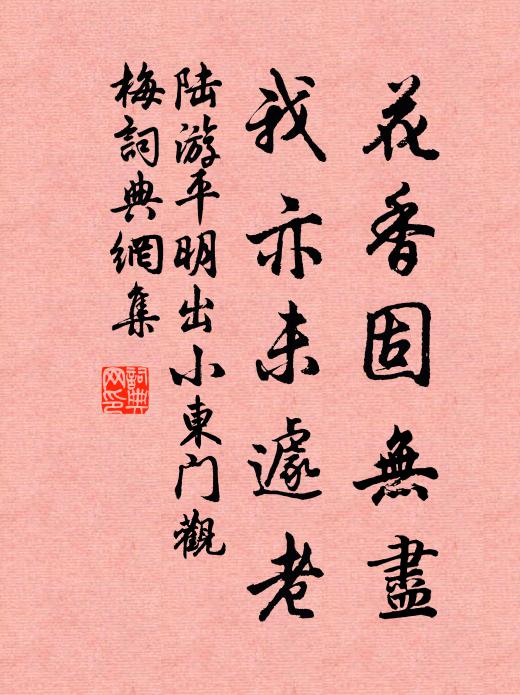 花香固無盡
我亦未遽老
陆游平明出小東门觀
梅詞典網集
詞典
网印